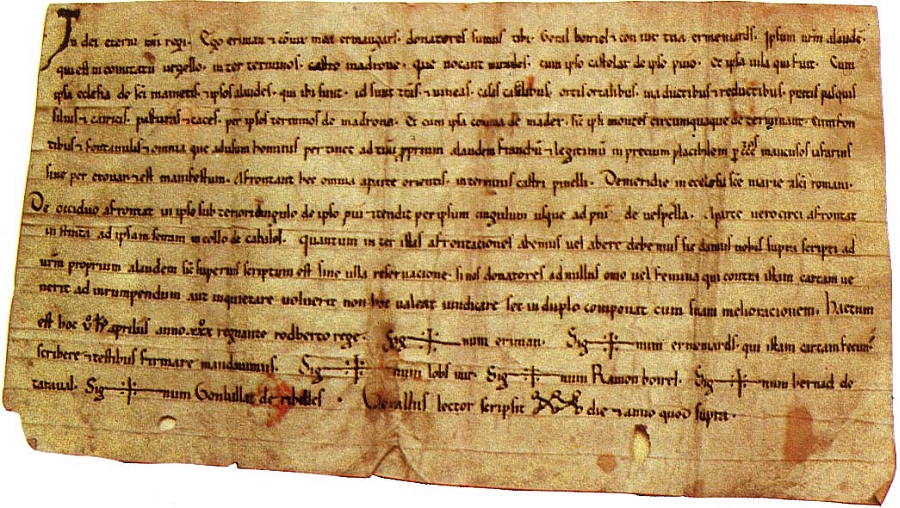 In dei eterni nri regi. Ego eriman & coniux mea ermangars. donatores sumus tibi. Guil borrel & coniuge tua ermeniards. Ipsum nrm alaude.
qui est in comitatu urgello. inter terminos. castro madrone. que vocant mirales. cum ipso castelar de ipso puio. Et ipsa uila qui fuit. Cum
ipsa eclesia de sci mametis & ipsos alaudes. qui ibi sunt. id sunt & uineas. casas casalibus. ortis ortalibus. ina ductibus & reductibus. pratis pasquis
siluis & garricis. pasturas & per ipsos terminos de madrona. Et cum ipsa coma de mader. sic ipsi montes circumquaque de terminant. Cum fon
tibus & fontanulis & omnia que ad usum hominis pertinet ad tuu pprium alaudem franchu & legitimu in precium placibilem mancusos
sine per & est manifestum. Afrontant hec omnia a parte orientis. in terminis castri pinelli. De meridie in eclesia sce marie romani.
De occiduo afrontat in ipso cingulo de ipso pui & tendit per ipsum cingulum usque ad pui de uespella. A parte uero circi afrontat
in ad ipsam in collo de Quantum inter istas afrontaciones abemus uel abere debemus sic damus uobis supra scripti ad
urm proprium alaudem sic superius scriptum est sine ulla reseruacione. si nos donatores ad nullus omo uel femina qui contra istam cartam ue
nerit ad inrumpendum aut inquietare uoluerit non hoc ualeat uindicare set in duplo componat cum suam melioracionem. Factum
est hoc aprilius anno xxx regnante rodberto rege. Sig num eriman. Sig num ermeniards. qui istam cartam
scribere & testibus firmare mandauimus. Sig num Sig num Ramon borrel. Sig num bernad de
taraual. Sig num Gonballdt de ribelles. Uerallus lector scripsit die & anno quod supra.